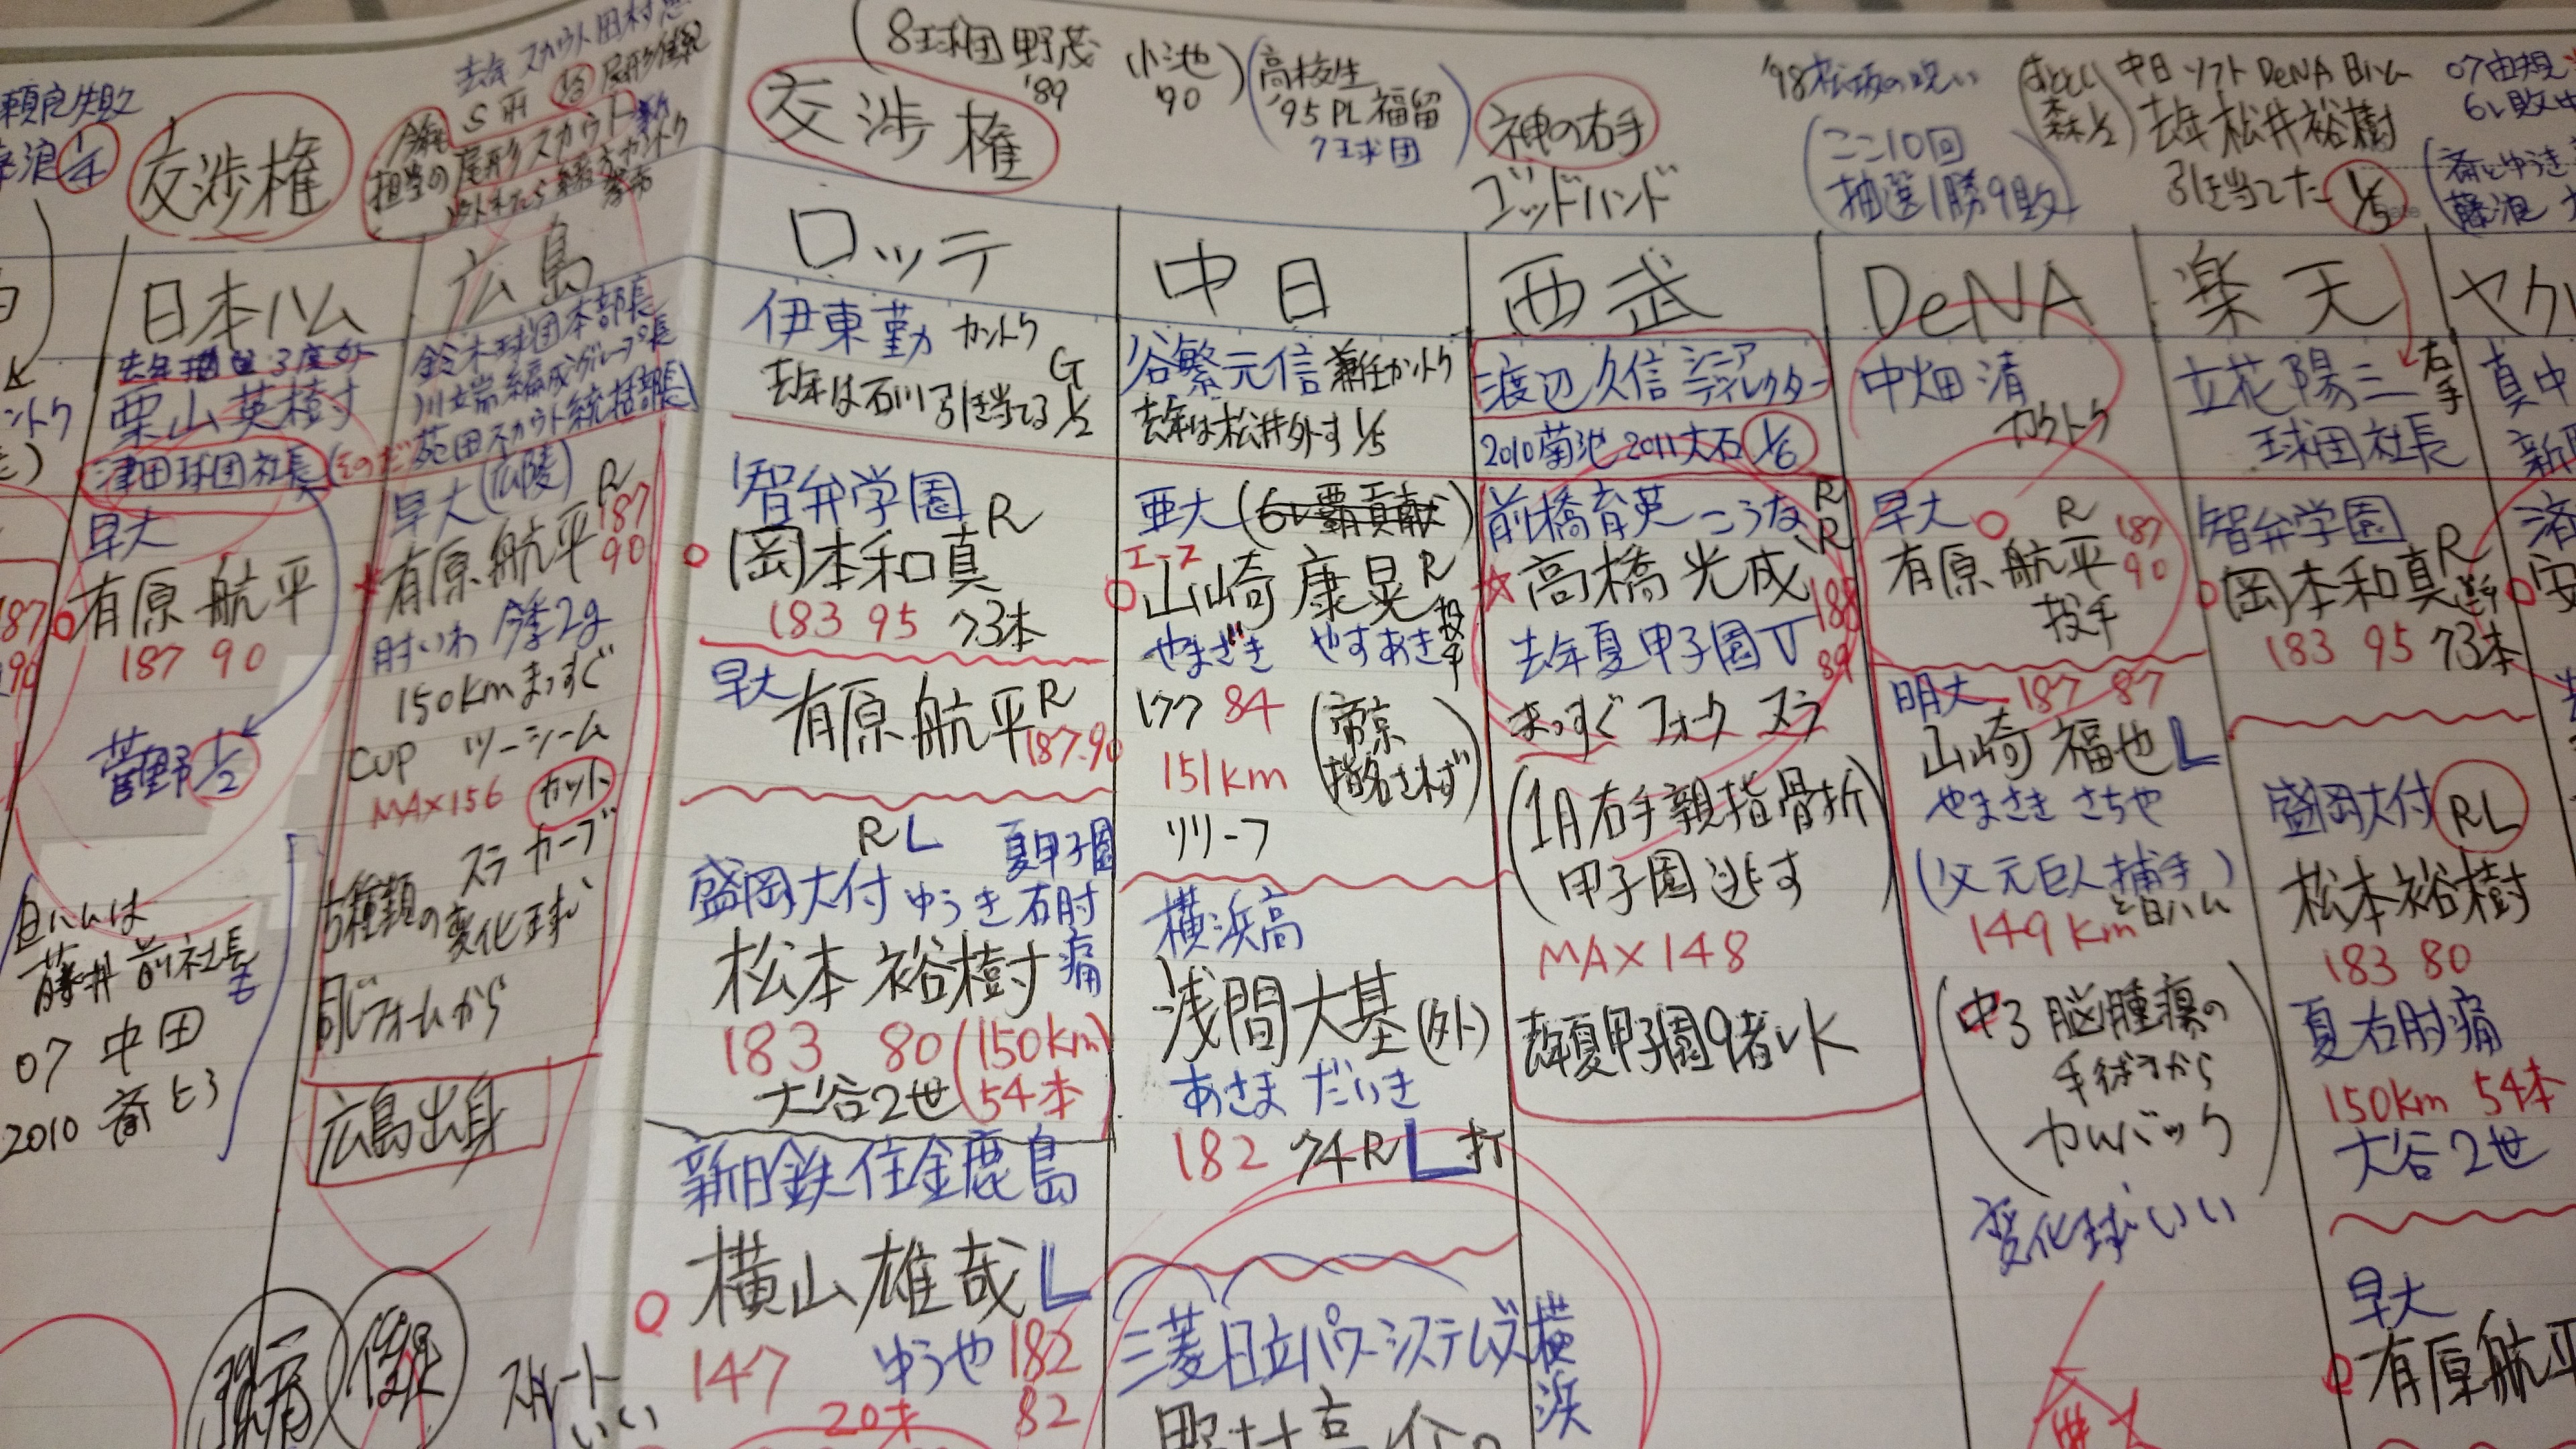 8球団 野茂 '89 小池 '90
高校生 '95 PL 福留 7球団
'98 松坂の呪い
ここ10回
抽選1勝9敗
おととし 森 1/2
中日 ソフト DeNA 日ハム
去年 松井裕樹
引き当てた 1/5
07由規
1/4
交渉権
交渉権
神の右手
ゴッドハンド
日本ハム
栗山英樹
津田球団社長
早大
有原 航平
187 90
菅野 1/2
日ハムは
藤井 前社長も
07 中田
2010 斎とう
広島
鈴木球団本部長
川端編成グループ長
(そのだ)苑田スカウト統括部長
早大(広陵)
有原 航平 R 187 90
肘いわ 今季2g
150km まっすぐ
CUP ツーシーム
MAX156 カット
スラ カーブ
5種類の変化球
同じフォームから
広島出身
ロッテ
伊東 勤 カントク
去年は石川引き当てる G 1/2
智弁学園
岡本和真 R
183 95 73本
早大 有原 航平 R
187.90
R L 夏甲子園
盛岡大付 ゆうき 右肘痛
松本 裕樹
183 80 (150km 54本)
大谷2世
新日鉄住金鹿島
横山 雄哉 L
147 ゆうや 182 82
20才
中日
谷繁元信 兼任カントク
去年は松井外す 1/5
亜大 (6レ覇貢献)
エース
山﨑 康晃 R 投手
やまざき やすあき
177 84
151km
(帝京 指名されず)
リリーフ
横浜高
浅間大基 (外)
あさま だいき
182 74 R L 打
三菱日立パワーシステムズ横浜
西武
渡辺 久信 シニアディレクター
2010菊池 2011大石 1/6
前橋育英 こうな R R
☆高橋 光成 188 89
去年夏甲子園V
まっすぐ フォーク スラ
(1月右手親指骨折
甲子園逃す)
MAX 148
去年夏甲子園9者レK
DeNA
中畑 清
カントク
早大 R
有原 航平 187 90
投手
明大 187 87
山崎 福也 L
やまさき さちや
(父 元巨人捕手と日ハム)
149 km
(中3 脳腫瘍の
手術から
カムバック)
変化球いい
楽天
立花 陽三 右手
球団社長
智弁学園
岡本和真 R
183 95 73本
盛岡大付 RL
松本裕樹
183 80
夏 右肘痛
150km 54本
大谷2世
早大
有原航平
ヤク
真中
ストレート
いい